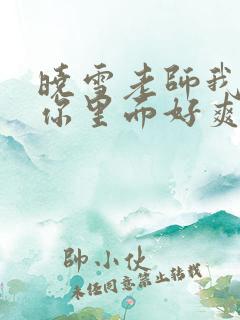 曉雪老師我
你里面好爽
帥小伙
未经同意禁止转载